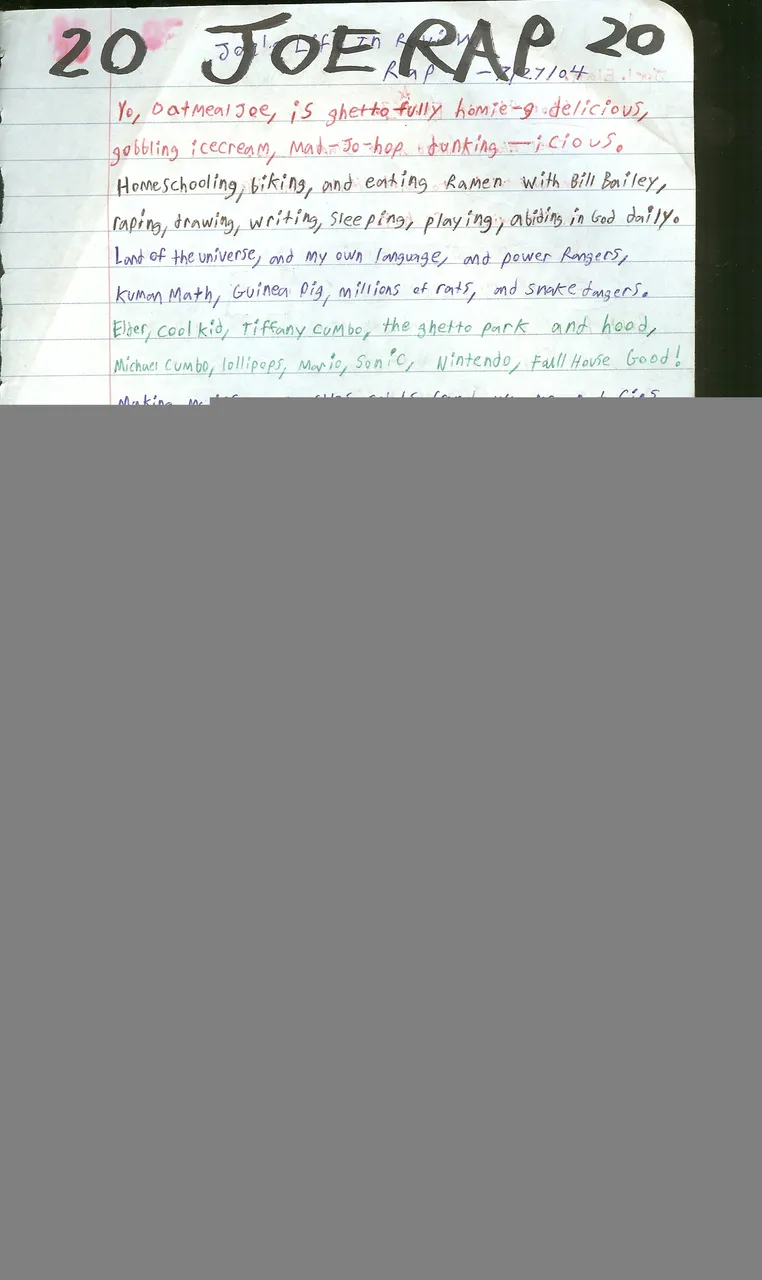 20 JOE RAP 20
Joel's Life In Review
Rap - 7/27/04
Yo, Oatmeal Joe, is ghetto fully homie-g delicious,
gobbling icecream, Mad-Jo-hop dunking - icious.
Homeschooling, biking, and eating Ramen with Bill Bailey,
raping, drawing, writing, sleeping, playing, abiding in God daily.
Land of the universe, and my own language, and power Rangers,
Kuman Math, Guinea Pig, millions of rats, and snake dangers.
Elder, cool kid, Tiffany Cumbo, the ghetto park and hood,
Michael Cumbo, lollipops, Mario, Sonic, Nintendo, Fall House Good!
Making